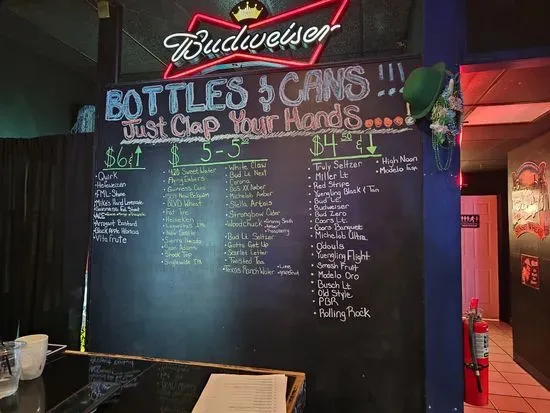 Budweiser
BOTTLES & CANS!!!
Just Clap Your Hands....
$6 & ↑
• Quirk
• Hefeweizen
• FML-Stone
• Mike's Hard Lemonade
• Arrogant Bastard
• Black Apple
• Vita frute
$ 5-5.50
• 420 Sweet Water
• Guinness Cans
• New Belgium
• Fat Tire
• Heineken
• Lagunitas IPA
• New Castle
• Sierra Nevada
• Sam Adams
• Shock Top
• White Claw
• Bud Lt. Next
• Corona
• Dos XX Amber
• Michelob Amber
• Stella Artois
• Strongbow Cider
• Woodchuck
• Granny Smith
• Amber
• Raspberry
• Bud Lt. Seltzer
• Gotta Get Up
• Scarlet Letter
• Twisted Tea
• Texas Ranch Water
• Lime
• Grapefruit
$4.50 & ↓
• Truly Seltzer
• Miller Lt
• Red Stripe
• Yuengling Black & Tan
• Bud Lt
• Budweiser
• Bud Zero
• Coors Lt
• Coors Banquet
• Michelob Ultra
• O'douls
• Yuengling Flight
• Smash Fruit
• Modelo Oro
• Busch Lt
• Old Style
• PBR
• Rolling Rock
• High Noon
• Modelo